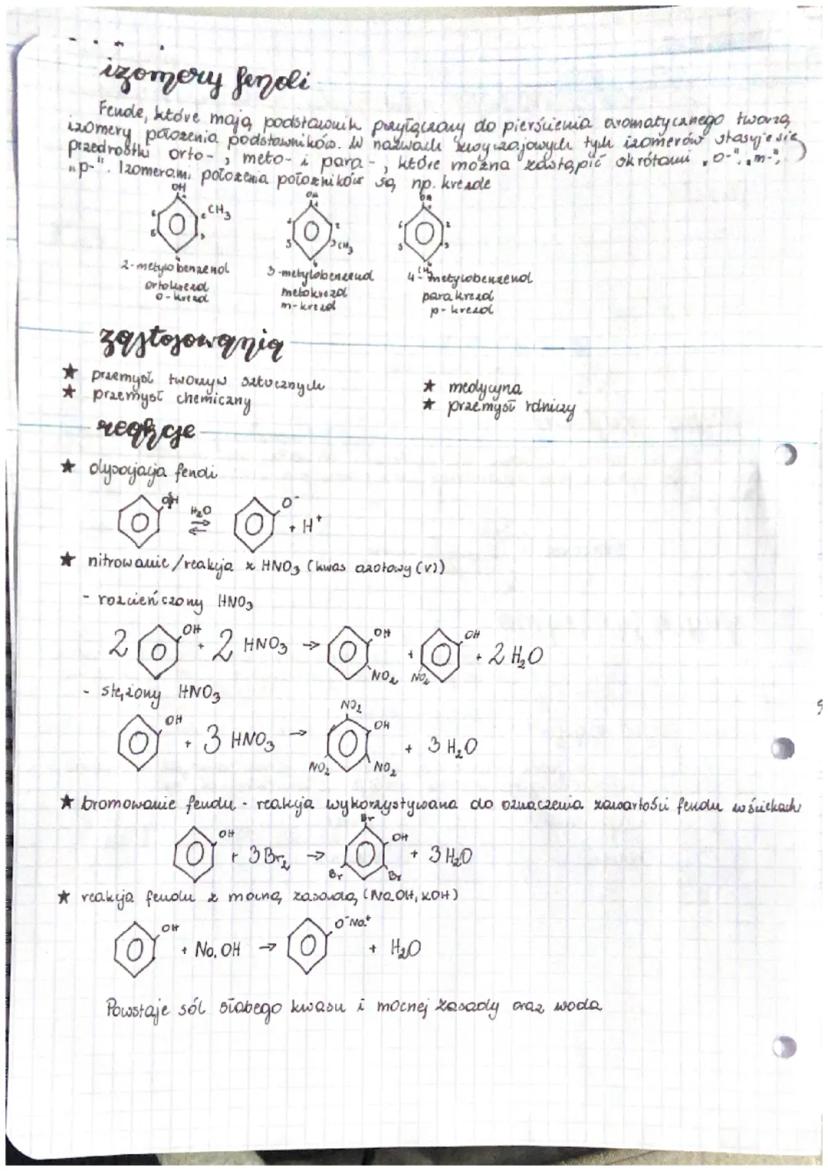 izomery fenoli
Fenole, które mają podstawnik przyłączony do pierścienia aromatycznego tworzą
izomery położenia podstawników. W nazwach zwyczajowych tych izomerów stosuje się
przedrostki orto-, meto- i para-, które można zastąpić skrótami „o-", „m-",
„p-". Izomerami położenia położników są np. krezole
OH OH OH
6 CH₃ 6 2 6 2
5 3 5 CH₃ 5 3
CH₃
2-metylobenzenol 3-metylobenzenol 4-metylobenzenol
ortokrezol metakrezol parakrezol
o-krezol m-krezol p-krezol
zastosowania
★ przemysł tworzyw sztucznych ★ medycyna
★ przemysł chemiczny ★ przemysł rolniczy
reakcje
★ dysocjacja fenoli
OH H₂O ⇌ O⁻ + H⁺
★ nitrowanie/reakcja z HNO₃ (kwas azotowy (V))
- rozcieńczony HNO₃
2 OH + 2 HNO₃ → OH NO₂ + OH NO₂ + 2 H₂O
- stężony HNO₃
OH + 3 HNO₃ → NO₂ OH NO₂ NO₂ + 3 H₂O
★ bromowanie fenolu - reakcja wykorzystywana do oznaczenia zawartości fenolu w ściekach
OH + 3 Br₂ → Br OH Br Br + 3 H₂O
★ reakcja fenolu z mocną zasadą (NaOH, KOH)
OH + NaOH → O⁻Na⁺ + H₂O
Powstaje sól słabego kwasu i mocnej zasady oraz woda